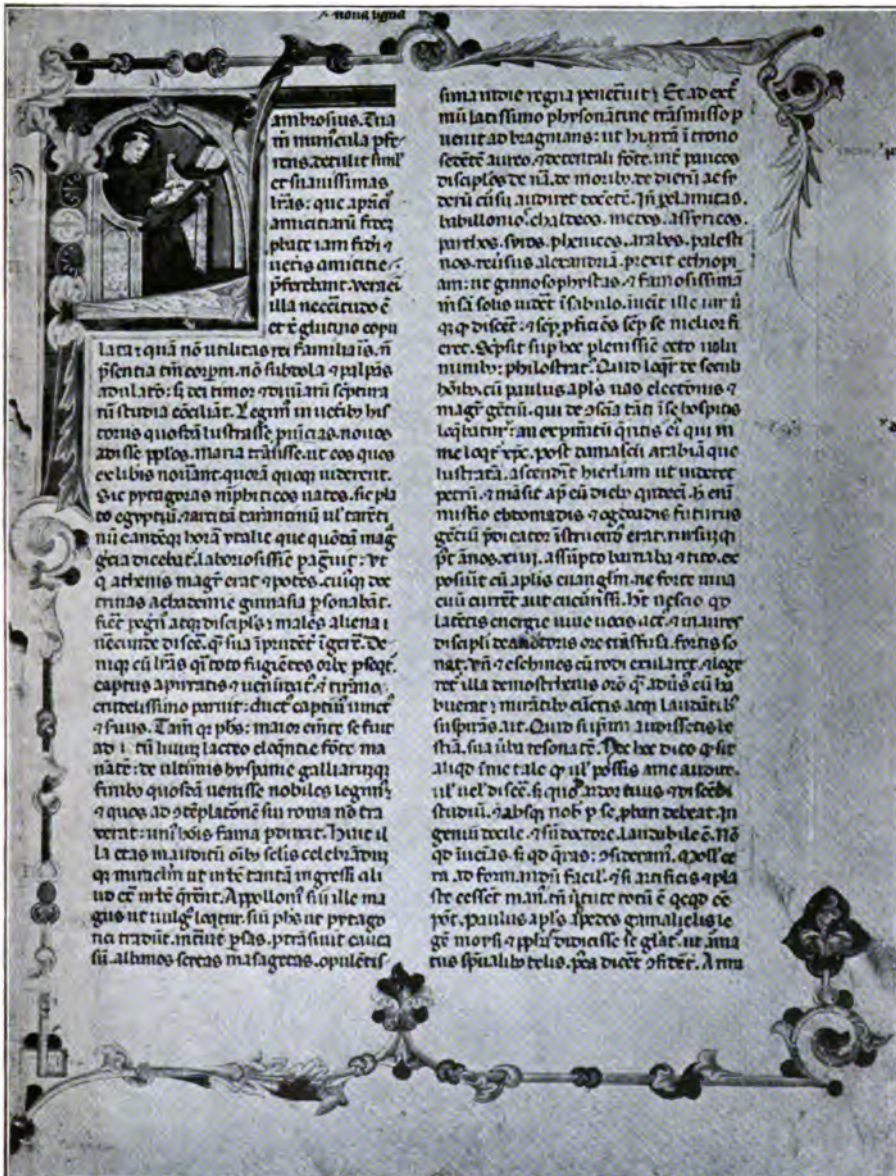 noua ligna
ambrosius. Tua
m̄ munuscula ꝑfe
rens. detulit simł
et suauissimas
lr̄as: que apn̄ci
amicitiarū fidez
ꝓbate iam fidei ⁊
ueteris amicitie
p̄ferebant. vera ei
illa neccitudo ē
et xp̄i glutino copu
lata: quā nō utilitas rei familiaris. n̄
p̄sentia tm̄ corpm̄. nō subdola ⁊ palpās
adulatō: s; dei timor ⁊ diuinarū scptura
rū studia cōciliāt. Legim̄ in uetib; his
torijs quosdā lustrasse ꝓuīcias. nouos
adisse pplos. maria trāsisse. ut eos quos
ex libris nouāant. quorā quoq; uiderent.
Sic pytagoras mēphiticos uates. sic pla
to egyptū. ⁊ arcitā tarantinū ul' tarēti
nū eandēq; horā ytalie que quōdā mag̃
grecia dicebat'. laboriosissīe pag̃uit: vt
q̄ athenis mag̃r erat ⁊ potēs. cuiq; doc
trinas achademie ginnasia ꝑsonabāt.
fieret pegrin' atq; discipls: malēs aliena ī
uecūnde discē. q̄ sua īprudēt' īgerē. De
niq; cū lr̄as q̄si toto fugiētes orbe pseqt'.
captus a piratis ⁊ uenūdat'. ⁊ tirāno
crudelissimo paruit: duct' captiu' uinct'
⁊ seruus. Tam̄ qr phs: maior emēte se fuit
ad t. tū liuiū lacteo eloq̄ntie fōte ma
nātē: de ultimis hyspanie galliarūq;
finib; quosdā uenisse nobiles legim':
⁊ quos ad ɔtēplatōnē sui roma nō tra
xerat: uni' hois fama ꝑduxit. Habuit il
la etas inauditū oib; sclis celebrādūq;
miraclm̄ ut urbē tantā ingressi ali
ud ext̄ urbē q̄rerent. Appolloni' siue ille ma
gus ut uulg' loqtur. siue phs ut pytago
rici tradūt. intuit psas. ptrāsiuit cauca
sū. albanos scitas masagetas. opulētis
sima indie regna penetuit: Et ad ext̄
mū latissimo physon amne trāsmisso ꝑ
uenit ad bragmans: ut hyartā ī trono
sedētē aureo. ⁊ de tentali fōte. int' paucos
disciplos de nā. de morib; de dierū ac sy
derū cursu audiret docētē. Īn p̄ elamitas.
babillonios. chaldeos. medos. assyrios.
parthos. syros. phenices. arabes. palesti
nos. reusus alexandriā. prexit ethiopi
am: ut ginnosophystas. ⁊ famosissimā
m̄sā solis uidet' ī sabulo. īuenit ille uir ū
q; qd discet': ⁊ sēp ꝓficiēs sēp se melior fi
eret. Scpsit sup hoc plenissīe octo uolu
minib; philostrat'. Quid loqr de secli
hōib; cū paulus apls uas electōnis ⁊
magr gētiū. qui de ɔsciā tāti ī se hospitis
loq̄batur: an expimētū q̄ritis ei' qui in
me loqt' xp̄c. post damascū arabiāque
lustratā. ascendit hierlimam ut uideret
petrū. ⁊ māsit ap' eū dieb; quindeci. h' enī
misterio ebtomadis ⁊ ogdoadis futurus
gētiū pdicator īstruend' erat. rursūq;
pt ānos. xiiij. assūpto barnaba ⁊ tito. ex
posuit cū aplis euanglm. ne forte in ua
cuū curret aut cucurissi. Hȝ nescio qd
latētis energie uiue uocis act'. ⁊ in aures
discipli de auctoris ore trāsfusa. fortis so
nat. Vn̄ ⁊ eschines cū rodi exularet. ⁊ lege
ret' illa demosthenis orō q̄ adūs' eū ha
buerat: mirātib; cūctis atq; laudātib;
suspirās ait. Quid si ipm̄ audissetis be
stiā. sua ūba resonātē. Nec hoc dico q̄ sit
aliqd ī me tale q̄ ul' possis a me audire.
ul' uel' discē. s; quo ardor tuus ⁊ discēdi
studiū. ⁊ absq; nob' p se. pbari debeat. In
geniū docile. ⁊ sn̄ doctore. laudabile ē. Nō
qd īueias. s; qd q̄ras: ɔsideram'. Moll' ce
ra. ad formandū facil'. ⁊ si artificis ⁊ pla
ste cessēt man'. tn̄ ūtute totū ē qcqd ēē
pōt'. Paulus apls. ad pedes gamalielis le
gē moysi ⁊ pphs didicisse se gl'at'. ut arma
tus spūalib; telis. p̄ea dicēt' ɔfidēt'. Arma